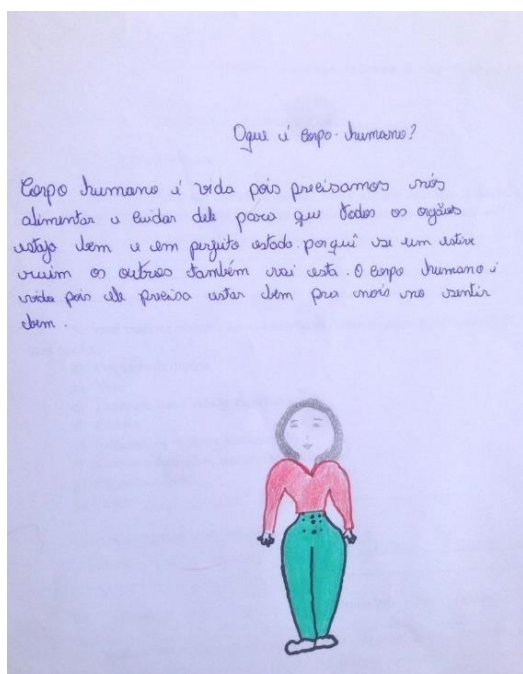 Oque é corpo-humano?
Corpo humano é vida pois precisamos nós
alimentar e cuidar dele para que todos os orgãos
estaja bem e em perfeito estado. porquê se um estive
ruim os outros também vai esta. O corpo humano é
vida pois ele precisa estar bem pra nois no sentir
bem.